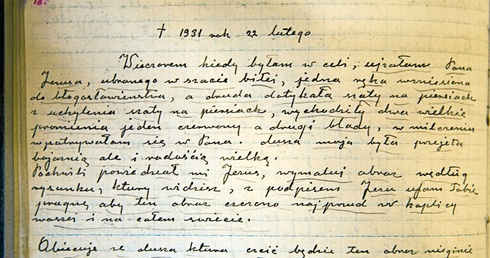 18.
† 1931 rok 22 lutego
Wieczorem kiedy byłam w celi, ujrzałam Pana
Jezusa, ubranego w szacie białej, jedna ręka wzniesiona
do błogosławieństwa, a druga dotykała szaty na piersiach
z uchylenia szaty na piersiach, wychodziły dwa wielkie
promienie jeden czerwony a drugi blady, w milczeniu
wpatrywałam się w Pana. dusza moja była przejęta
bojaźnią ale i radością wielką.
Po chwili powiedział mi Jezus, wymaluj obraz według
rysunku, który widzisz, z podpisem Jezu ufam Tobie
pragnę aby ten obraz czczono najprzód w kaplicy
waszej i na całem świecie.
Obiecuję że dusza która czcić będzie ten obraz nie zginie